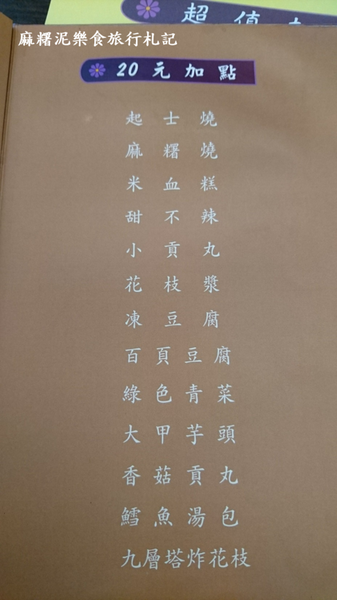 超值
麻糬泥樂食旅行札記
20元加點
起士燒
麻糬燒
米血糕
甜不辣
小貢丸
花枝漿
凍豆腐
百頁豆腐
綠色青菜
大甲芋頭
香菇貢丸
鱈魚湯包
九層塔炸花枝